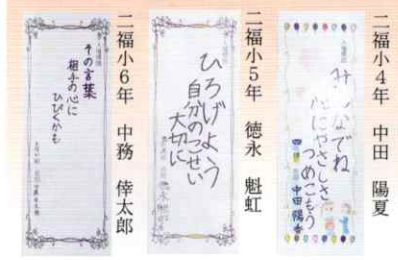 二福小4年 中田 陽夏
みんなでね
心にやさしさ
つめこもう
二福小5年 徳永 魁虹
ひろげよう
自分のこせい
大切に
二福小6年 中務 倖太郎
その言葉
相手の心に
ひびくかも